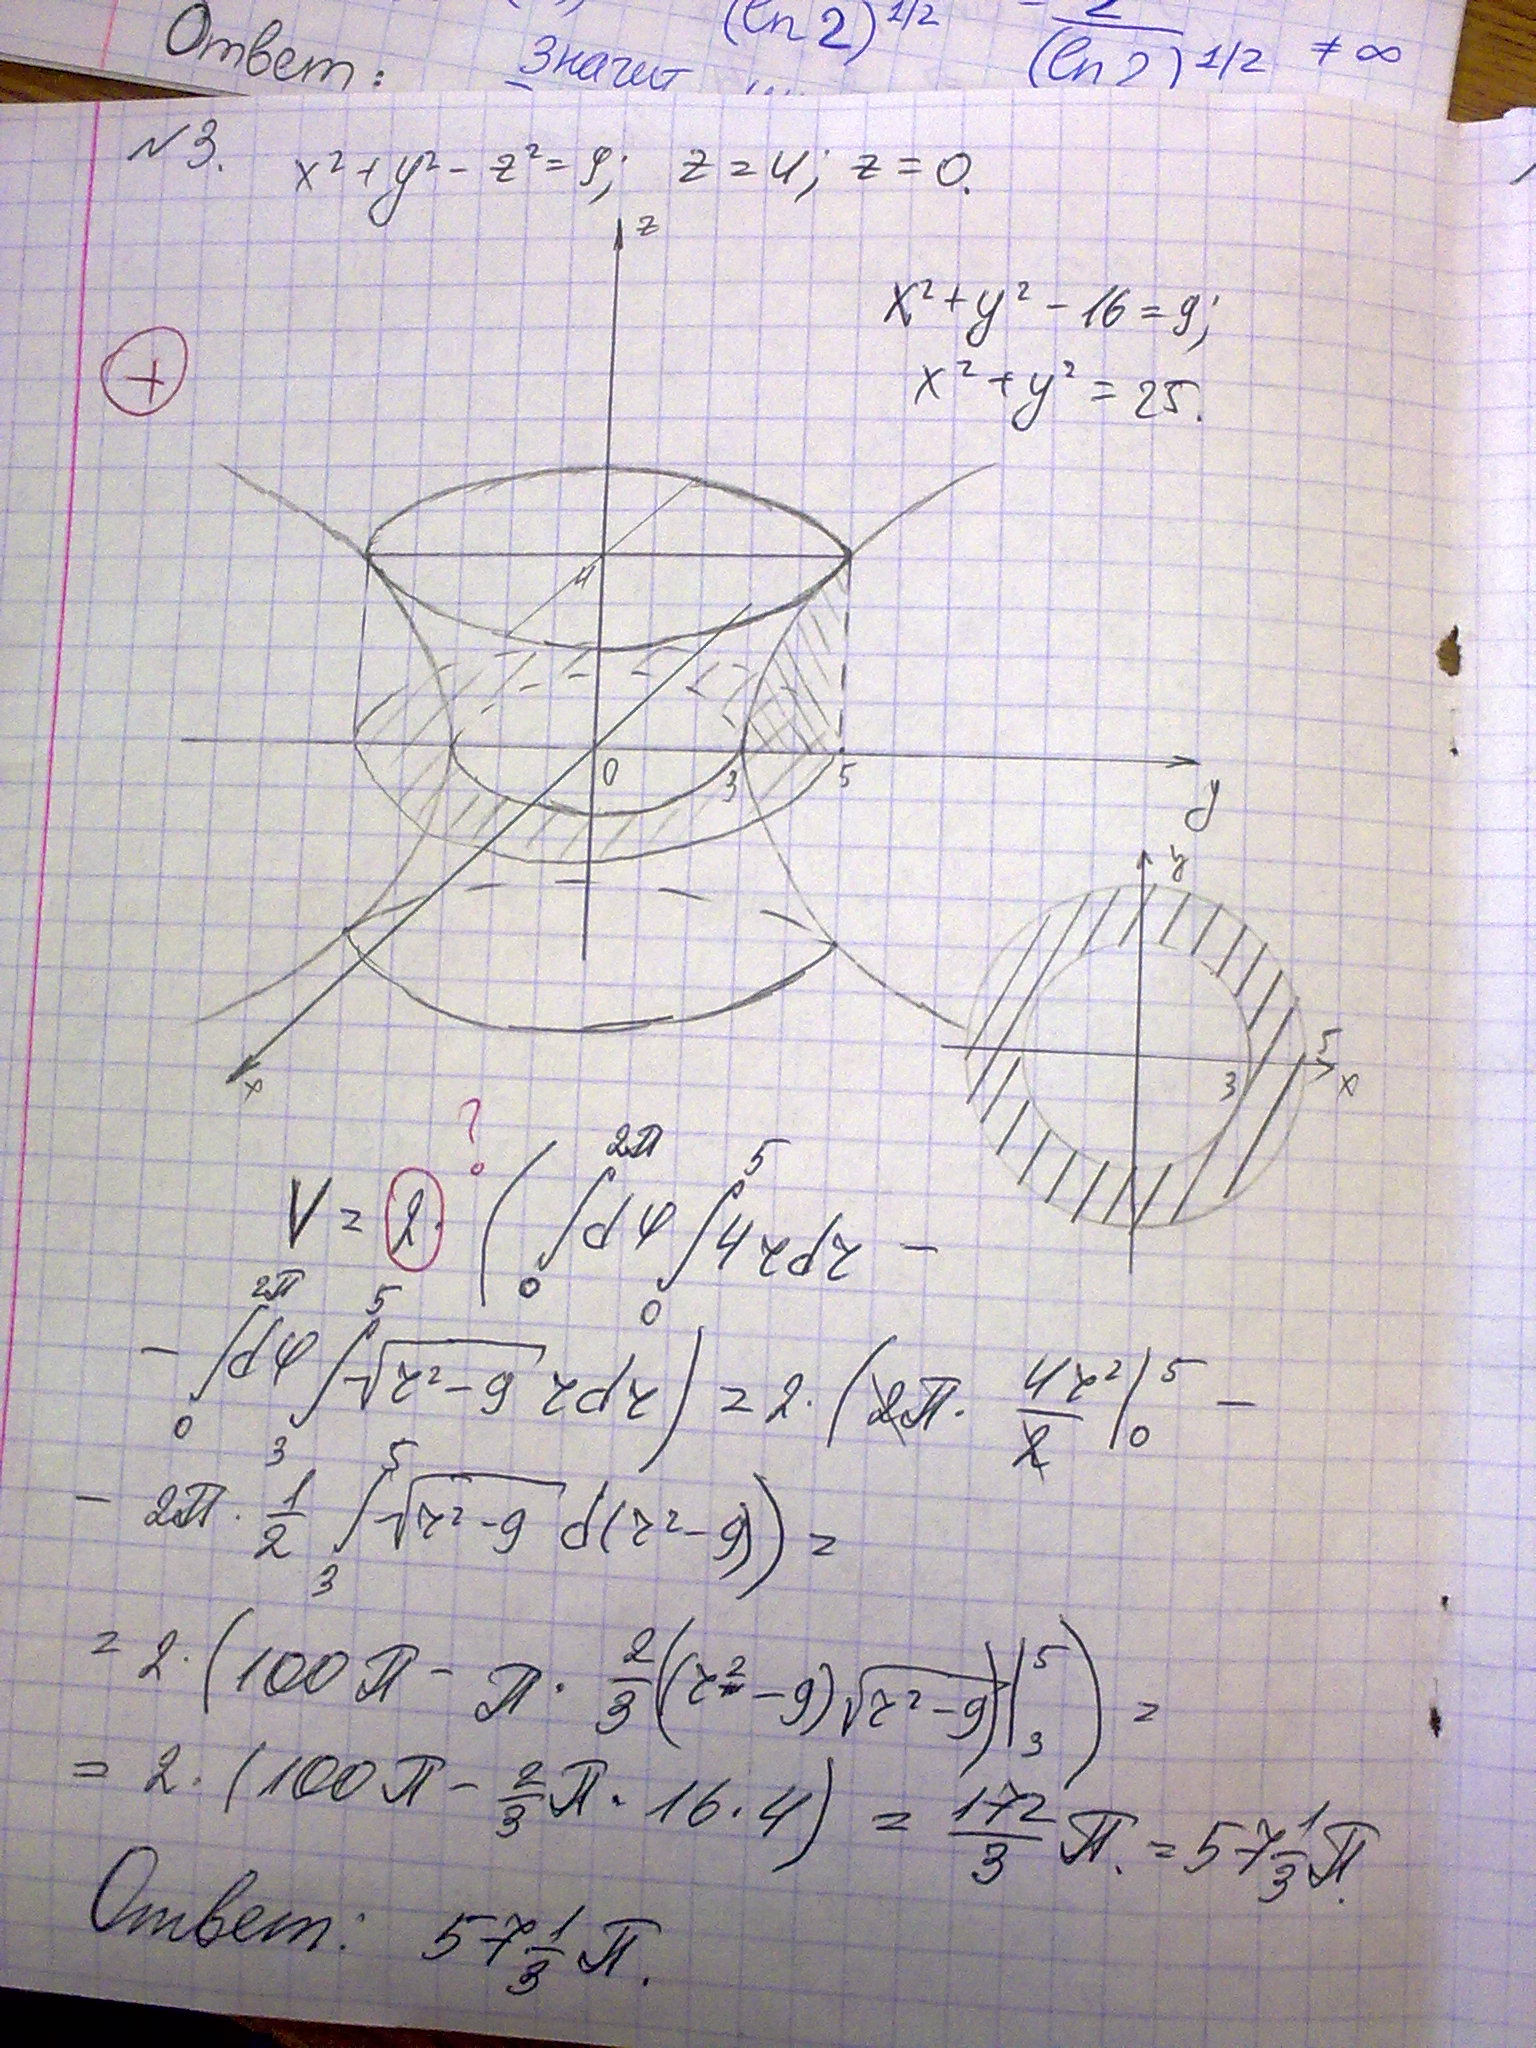 (ln 2)^{1/2} - \frac{2}{(ln 2)^{1/2}} ≠ ∞
Ответ: Значит ...
№3. x² + y² - z² = 9; z = 4; z = 0.
z
x² + y² - 16 = 9;
x² + y² = 25.
+
4
0 3 5
y
x
y
5
3 x
?
V = 2 · ( \int_0^{2π} dφ \int_0^5 4rdr -
- \int_0^{2π} dφ \int_3^5 \sqrt{r² - 9} rdr ) = 2 · ( 2π · \frac{4r²}{2} |_0^5 -
- 2π · \frac{1}{2} \int_3^5 \sqrt{r² - 9} d(r² - 9) ) =
= 2 · ( 100π - π · \frac{2}{3} ( (r² - 9) \sqrt{r² - 9} ) |_3^5 ) =
= 2 · ( 100π - \frac{2}{3} π · 16 · 4 ) = \frac{172}{3} π. = 57 \frac{1}{3} π.
Ответ: 57 \frac{1}{3} π.